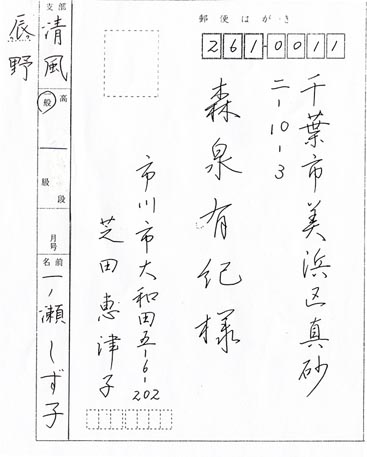 郵便はがき
261-0011
千葉市美浜区真砂
二-10-3
森泉有紀様
市川市大和田五-6-202
芝田恵津子
支部
清風
辰野
高
般
段
級
月号
名前
一ノ瀬しず子